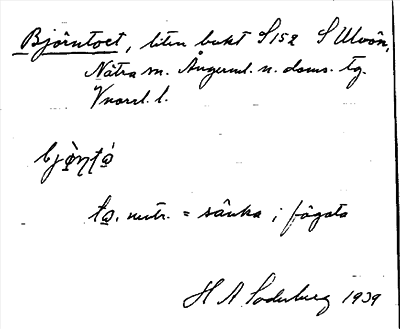 Björntoet, liten bukt S 152 S Ulvön,
Nätra sn. Ångerml. n. doms. tg.
V norrl. l.
to. neutr. = sänka i fägata
H A Söderberg 1939